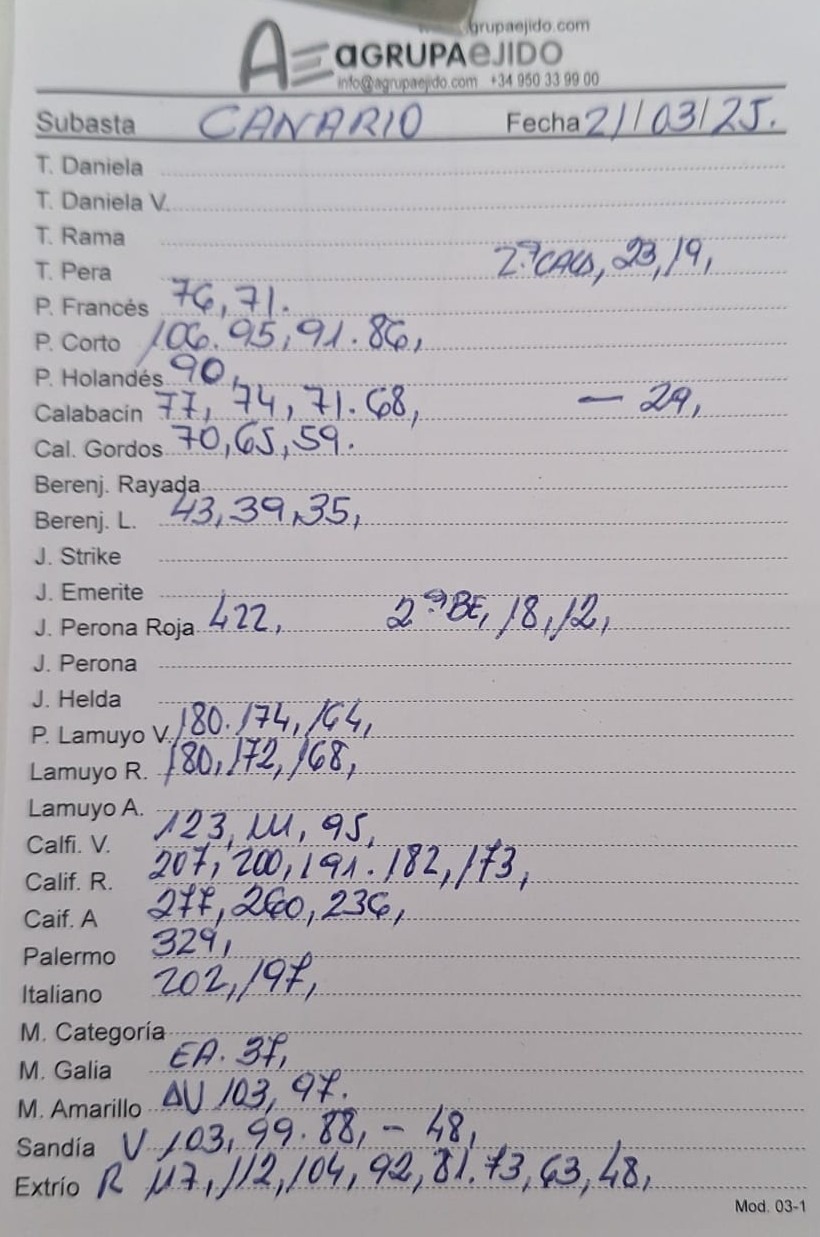 grupaejido.com
AE aGRUPAeJIDO
info@agrupaejido.com +34 950 33 99 00
Subasta CANARIO Fecha 21/03/25.
T. Daniela
T. Daniela V.
T. Rama
T. Pera 2ª CALS, 23, 19,
P. Francés 76, 71.
P. Corto 106. 95, 91. 86,
P. Holandés 90,
Calabacín 77, 74, 71. 68, — 29,
Cal. Gordos 70, 65, 59.
Berenj. Rayada
Berenj. L. 43, 39, 35,
J. Strike
J. Emerite
J. Perona Roja 422, 2ª BE, 18, 12,
J. Perona
J. Helda
P. Lamuyo V. 180. 174, 164,
Lamuyo R. 180, 172, 168,
Lamuyo A.
Calfi. V. 123, 111, 95,
Calif. R. 207, 200, 191. 182, 173,
Caif. A 277, 260, 236,
Palermo 329,
Italiano 202, 197,
M. Categoría
M. Galia EA. 37,
M. Amarillo AU 103, 97.
Sandía V 103, 99. 88, - 48,
Extrío R 117, 112, 104, 92, 81. 73, 63, 48,
Mod. 03-1